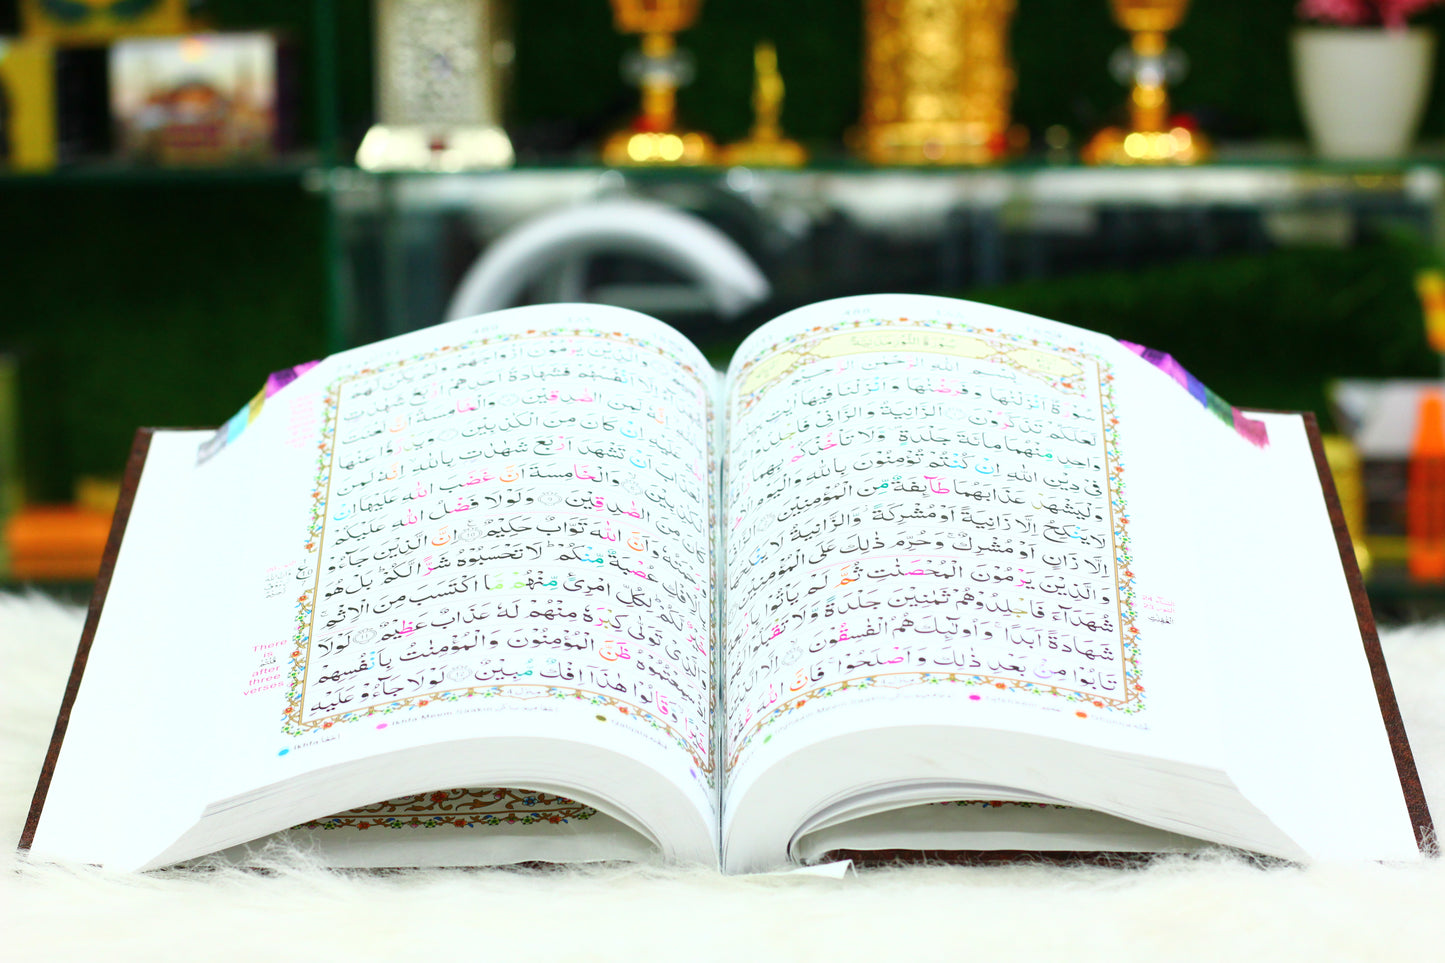 سُوْرَةُ النُّوْرِ مَدَنِيَّةٌ
بِسْمِ اللهِ الرَّحْمٰنِ الرَّحِيْمِ
سُوْرَةٌ اَنْزَلْنٰهَا وَفَرَضْنٰهَا وَاَنْزَلْنَا فِيْهَآ اٰيٰتٍ
لَّعَلَّكُمْ تَذَكَّرُوْنَ اَلزَّانِيَةُ وَالزَّانِيْ فَاجْلِدُوْا
وَاحِدٍ مِّنْهُمَا مِائَةَ جَلْدَةٍ وَّلَا تَاْخُذْكُمْ بِهِمَا
فِيْ دِيْنِ اللهِ اِنْ كُنْتُمْ تُؤْمِنُوْنَ بِاللهِ وَالْيَوْمِ
وَلْيَشْهَدْ عَذَابَهُمَا طَآئِفَةٌ مِّنَ الْمُؤْمِنِيْنَ
لَا يَنْكِحُ اِلَّا زَانِيَةً اَوْ مُشْرِكَةً وَّالزَّانِيَةُ لَا
اِلَّا زَانٍ اَوْ مُشْرِكٌ وَحُرِّمَ ذٰلِكَ عَلَى الْمُؤْمِنِيْنَ
وَالَّذِيْنَ يَرْمُوْنَ الْمُحْصَنٰتِ ثُمَّ لَمْ يَاْتُوْا
شُهَدَآءَ فَاجْلِدُوْهُمْ ثَمٰنِيْنَ جَلْدَةً وَّلَا تَقْبَلُوْا
شَهَادَةً اَبَدًا وَاُولٰٓئِكَ هُمُ الْفٰسِقُوْنَ اِلَّا الَّذِيْنَ
تَابُوْا مِنْ بَعْدِ ذٰلِكَ وَاَصْلَحُوْا فَاِنَّ اللهَ
وَالَّذِيْنَ يَرْمُوْنَ اَزْوَاجَهُمْ وَلَمْ يَكُنْ لَّهُمْ
اِلَّآ اَنْفُسُهُمْ فَشَهَادَةُ اَحَدِهِمْ اَرْبَعُ شَهٰدٰتٍ
اِنَّهٗ لَمِنَ الصّٰدِقِيْنَ وَالْخَامِسَةُ اَنَّ لَعْنَتَ
عَلَيْهِ اِنْ كَانَ مِنَ الْكٰذِبِيْنَ وَيَدْرَؤُا عَنْهَا
الْعَذَابَ اَنْ تَشْهَدَ اَرْبَعَ شَهٰدٰتٍ بِاللهِ اِنَّهٗ لَمِنَ
الْكٰذِبِيْنَ وَالْخَامِسَةَ اَنَّ غَضَبَ اللهِ عَلَيْهَآ اِنْ
كَانَ مِنَ الصّٰدِقِيْنَ وَلَوْلَا فَضْلُ اللهِ عَلَيْكُمْ
وَاَنَّ اللهَ تَوَّابٌ حَكِيْمٌ اِنَّ الَّذِيْنَ جَآءُوْ
بِالْاِفْكِ عُصْبَةٌ مِّنْكُمْ لَا تَحْسَبُوْهُ شَرًّا لَّكُمْ بَلْ هُوَ
لَّكُمْ لِكُلِّ امْرِئٍ مِّنْهُمْ مَّا اكْتَسَبَ مِنَ الْاِثْمِ
وَالَّذِيْ تَوَلّٰى كِبْرَهٗ مِنْهُمْ لَهٗ عَذَابٌ عَظِيْمٌ لَوْلَآ
سَمِعْتُمُوْهُ ظَنَّ الْمُؤْمِنُوْنَ وَالْمُؤْمِنٰتُ بِاَنْفُسِهِمْ
خَيْرًا وَّقَالُوْا هٰذَآ اِفْكٌ مُّبِيْنٌ لَوْلَا جَآءُوْ عَلَيْهِ
There
is
after
three
verses
Ikhfa اخفا
Ikhfa Meem Saakin